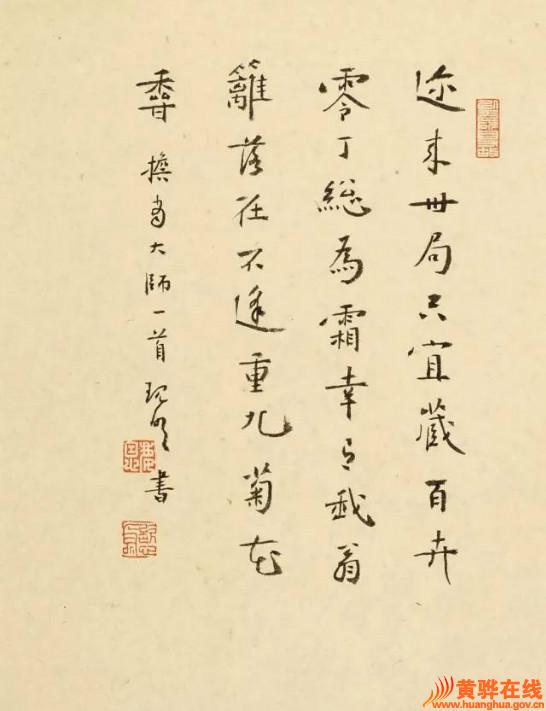 迩来世局只宜藏百卉
零丁總為霜幸有我翁
籬落在不逢重九菊花
香 擔当大師一首 書
黄骅在线
www.huanghua.gov.cn